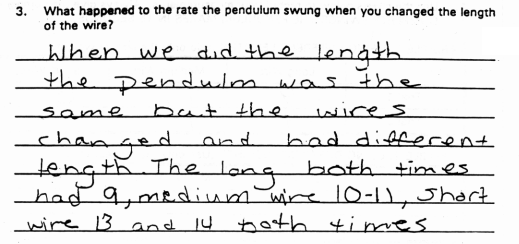 3. What happened to the rate the pendulum swung when you changed the length
of the wire?
When we did the length
the pendulm was the
same but the wires
changed and had different
length. The long both times
had 9, medium wire 10-11, short
wire 13 and 14 both times